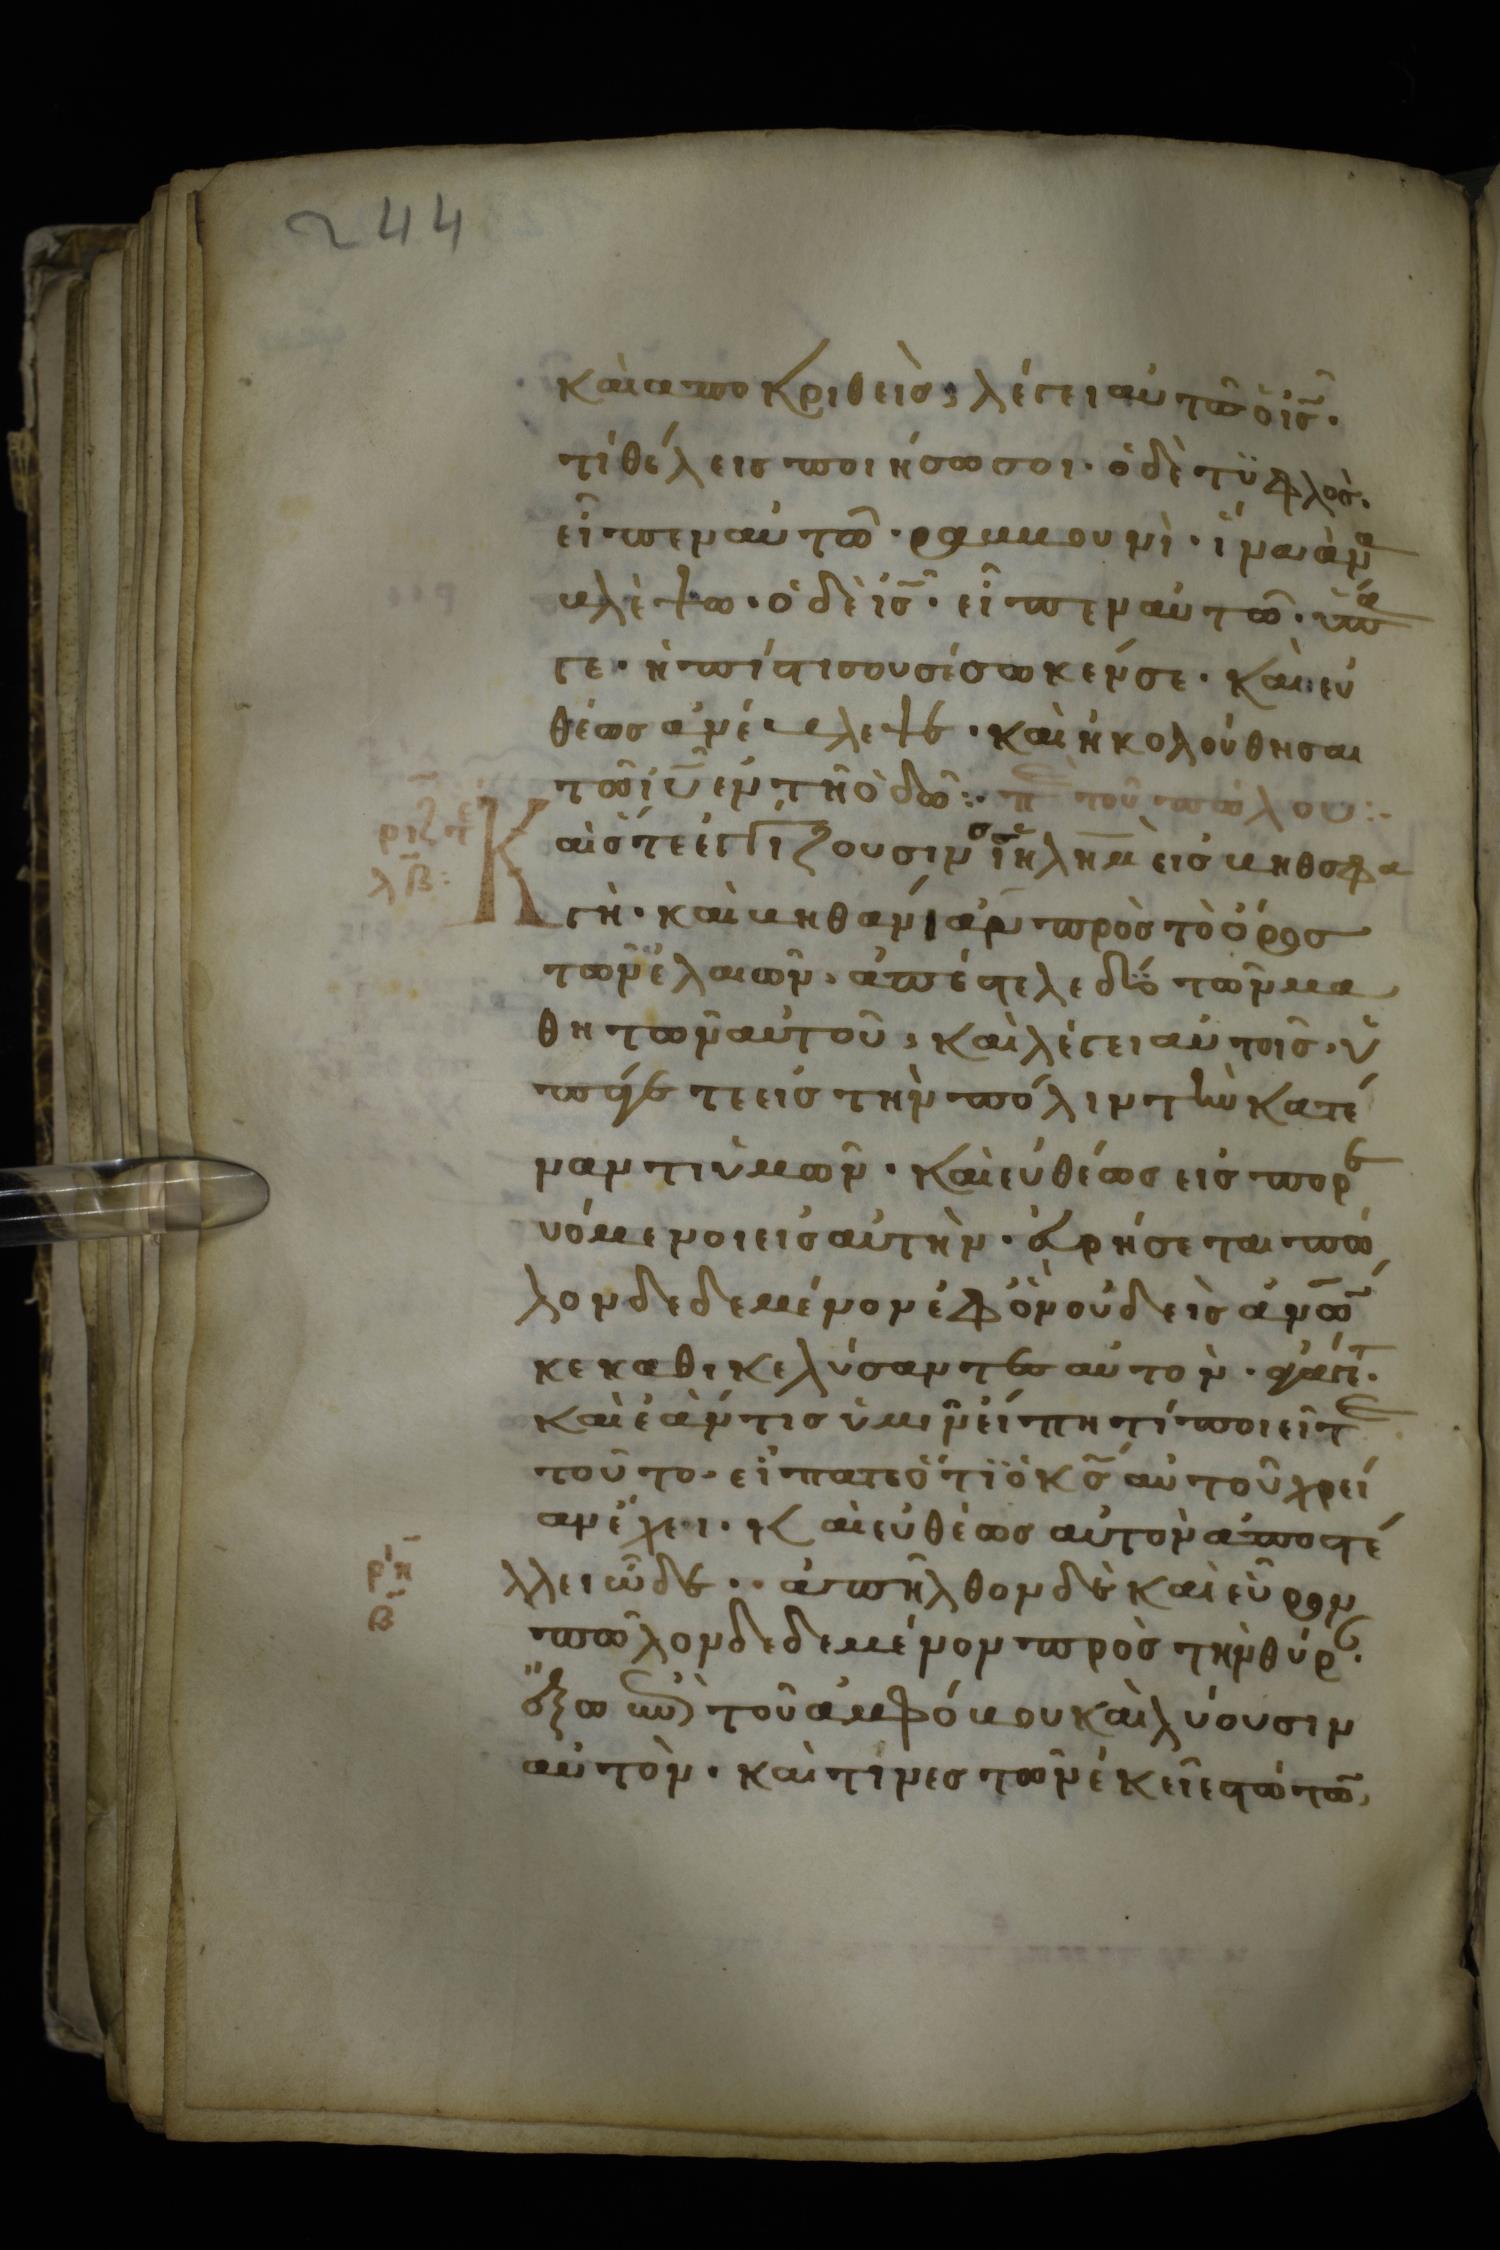 244
καὶ αποκριθεὶς, λέγει αὐτῶ ὁ ἰς̅.
τί θέλεις ποιήσω σοι. ὁ δὲ τϋφλὸς.
εἶπεν αὐτῶ. ραββουνὶ. ἵνα ἀνα
βλέψω. ὁ δὲ ἰς̅. εἶπεν αὐτῶ. ὕπα
γε. ἡ πίστις σου σέσωκεν σε. καὶ εὐ
θέως ἀνέβλεψε. καὶ ἠκολούθησαι
τῶ ἰυ̅ ἐν τῆ ὁδῶ:. πε τοῦ πώλου:.
ριζ τε
λβ̅:
Καὶ ὅτε ἐγγίζουσιν εἰς ἱηλη̅μ εἰς βηθσφα
γὴ. καὶ βηθανίαν πρὸς τὸ ὄρος
τῶν ἐλαιῶν, ἀποστέλε δϋο τῶν μα
θητῶν αὐτοῦ, καὶ λέγει αὐτοῖς. ὑ
πάγετε εἰς τὴν πόλιν τὴν κατέ
ναντι ὑμῶν. καὶ εὐθέως εἰσπορε
υόμενοι εἰς αὐτὴν. εὑρήσεται πώ
λον δεδεμένον ἐφ ὃν οὐδεὶς ἀν̅ω̅ν
κεκαθικε λύσαντες αὐτον. ἀγάγετ.
καὶ ἐάν τις ὑμῖν εἴπη τί ποιεῖτε
τοῦτο. εἴπατε ὅτϊ ὁ κς̅ αὐτοῦ χρεί
αν ἔχει. καὶ εὐθέως αὐτὸν ἀποστέ
ρι̅η
β̅
λλει ὧδε.. ἀπῆλθον δὲ καὶ εὗρον
πῶλον δεδεμένον πρὸς τὴν θύρα.
ἔξω ἐπὶ τοῦ ἀμφόδου καὶ λύουσιν
αὐτὸν. καὶ τινες τῶν ἐκεῖ εστώτω̅,